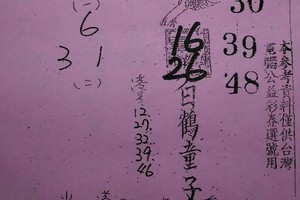 本參考資料僅供台灣
電腦公益彩券選號用
30
39
48
16
26
白鶴童子
12.
27.
32.
39.
46
(一)
6
3 1
(二)